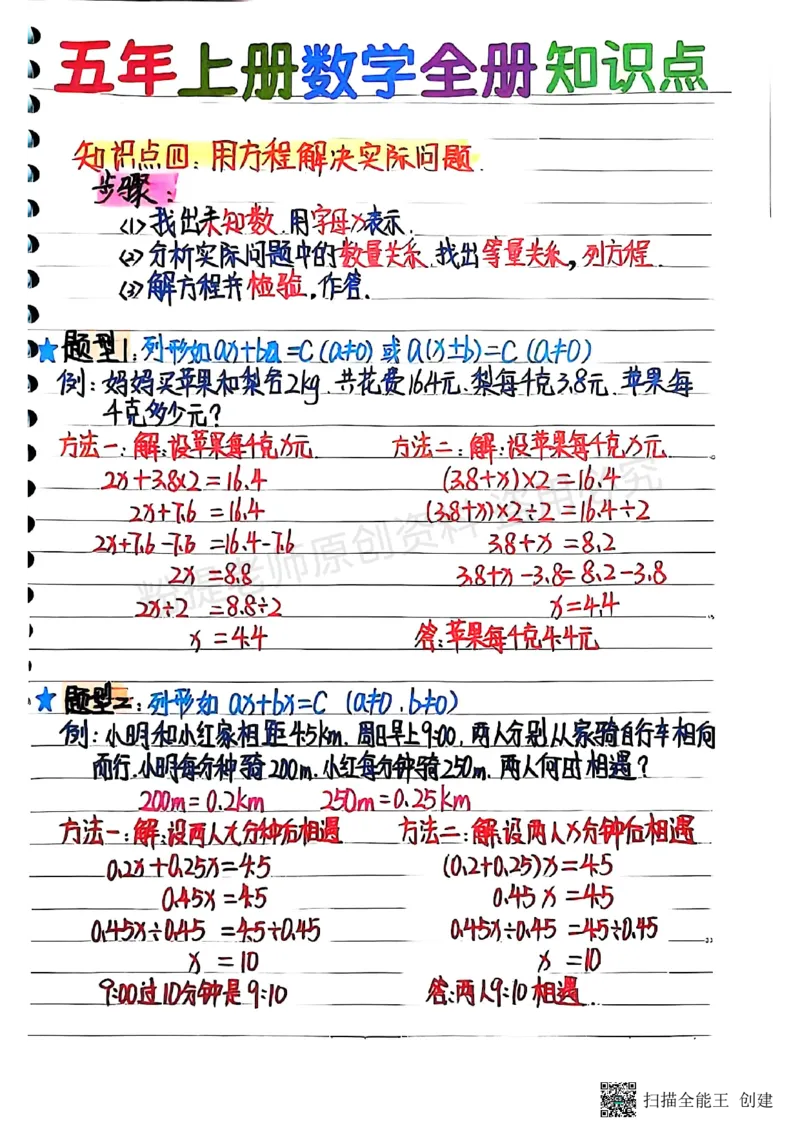 五年上册数学全册知识点
知识点四：用方程解决实际问题.
步骤：
(1)找出未知数.用字母x表示.
(2)分析实际问题中的数量关系.找出等量关系，列方程.
(3)解方程并检验.作答.
★题型1：列形如ax+ba=C(a≠0)或a(x±b)=C(a≠0)
例：妈妈买苹果和梨各2kg.共花费16.4元.梨每千克3.8元.苹果每
千克多少元?
方法一：解：设苹果每千克x元. 方法二：解：设苹果每千克x元.
2x+3.8×2=16.4 (3.8+x)×2=16.4
2x+7.6=16.4 (3.8+x)×2÷2=16.4÷2
2x+7.6-7.6=16.4-7.6 3.8+x=8.2
2x=8.8 3.8+x-3.8=8.2-3.8
2x÷2=8.8÷2 x=4.4
x=4.4 答：苹果每千克4.4元
★题型二：列形如ax+bx=C(a≠0.b≠0)
例：小明和小红家相距4.5km.周日早上9:00.两人分别从家骑自行车相向
而行.小明每分种骑200m.小红每分钟骑250m.两人何时相遇?
200m=0.2km 250m=0.25km
方法一：解：设两人x分种后相遇 方法二：解：设两人x分钟后相遇
0.2x+0.25x=4.5 (0.2+0.25)x=4.5
0.45x=4.5 0.45x=4.5
0.45x÷0.45=4.5÷0.45 0.45x÷0.45=4.5÷0.45
x=10 x=10
9:00过10分钟是9:10 答：两人9:10相遇.
扫描全能王 创建